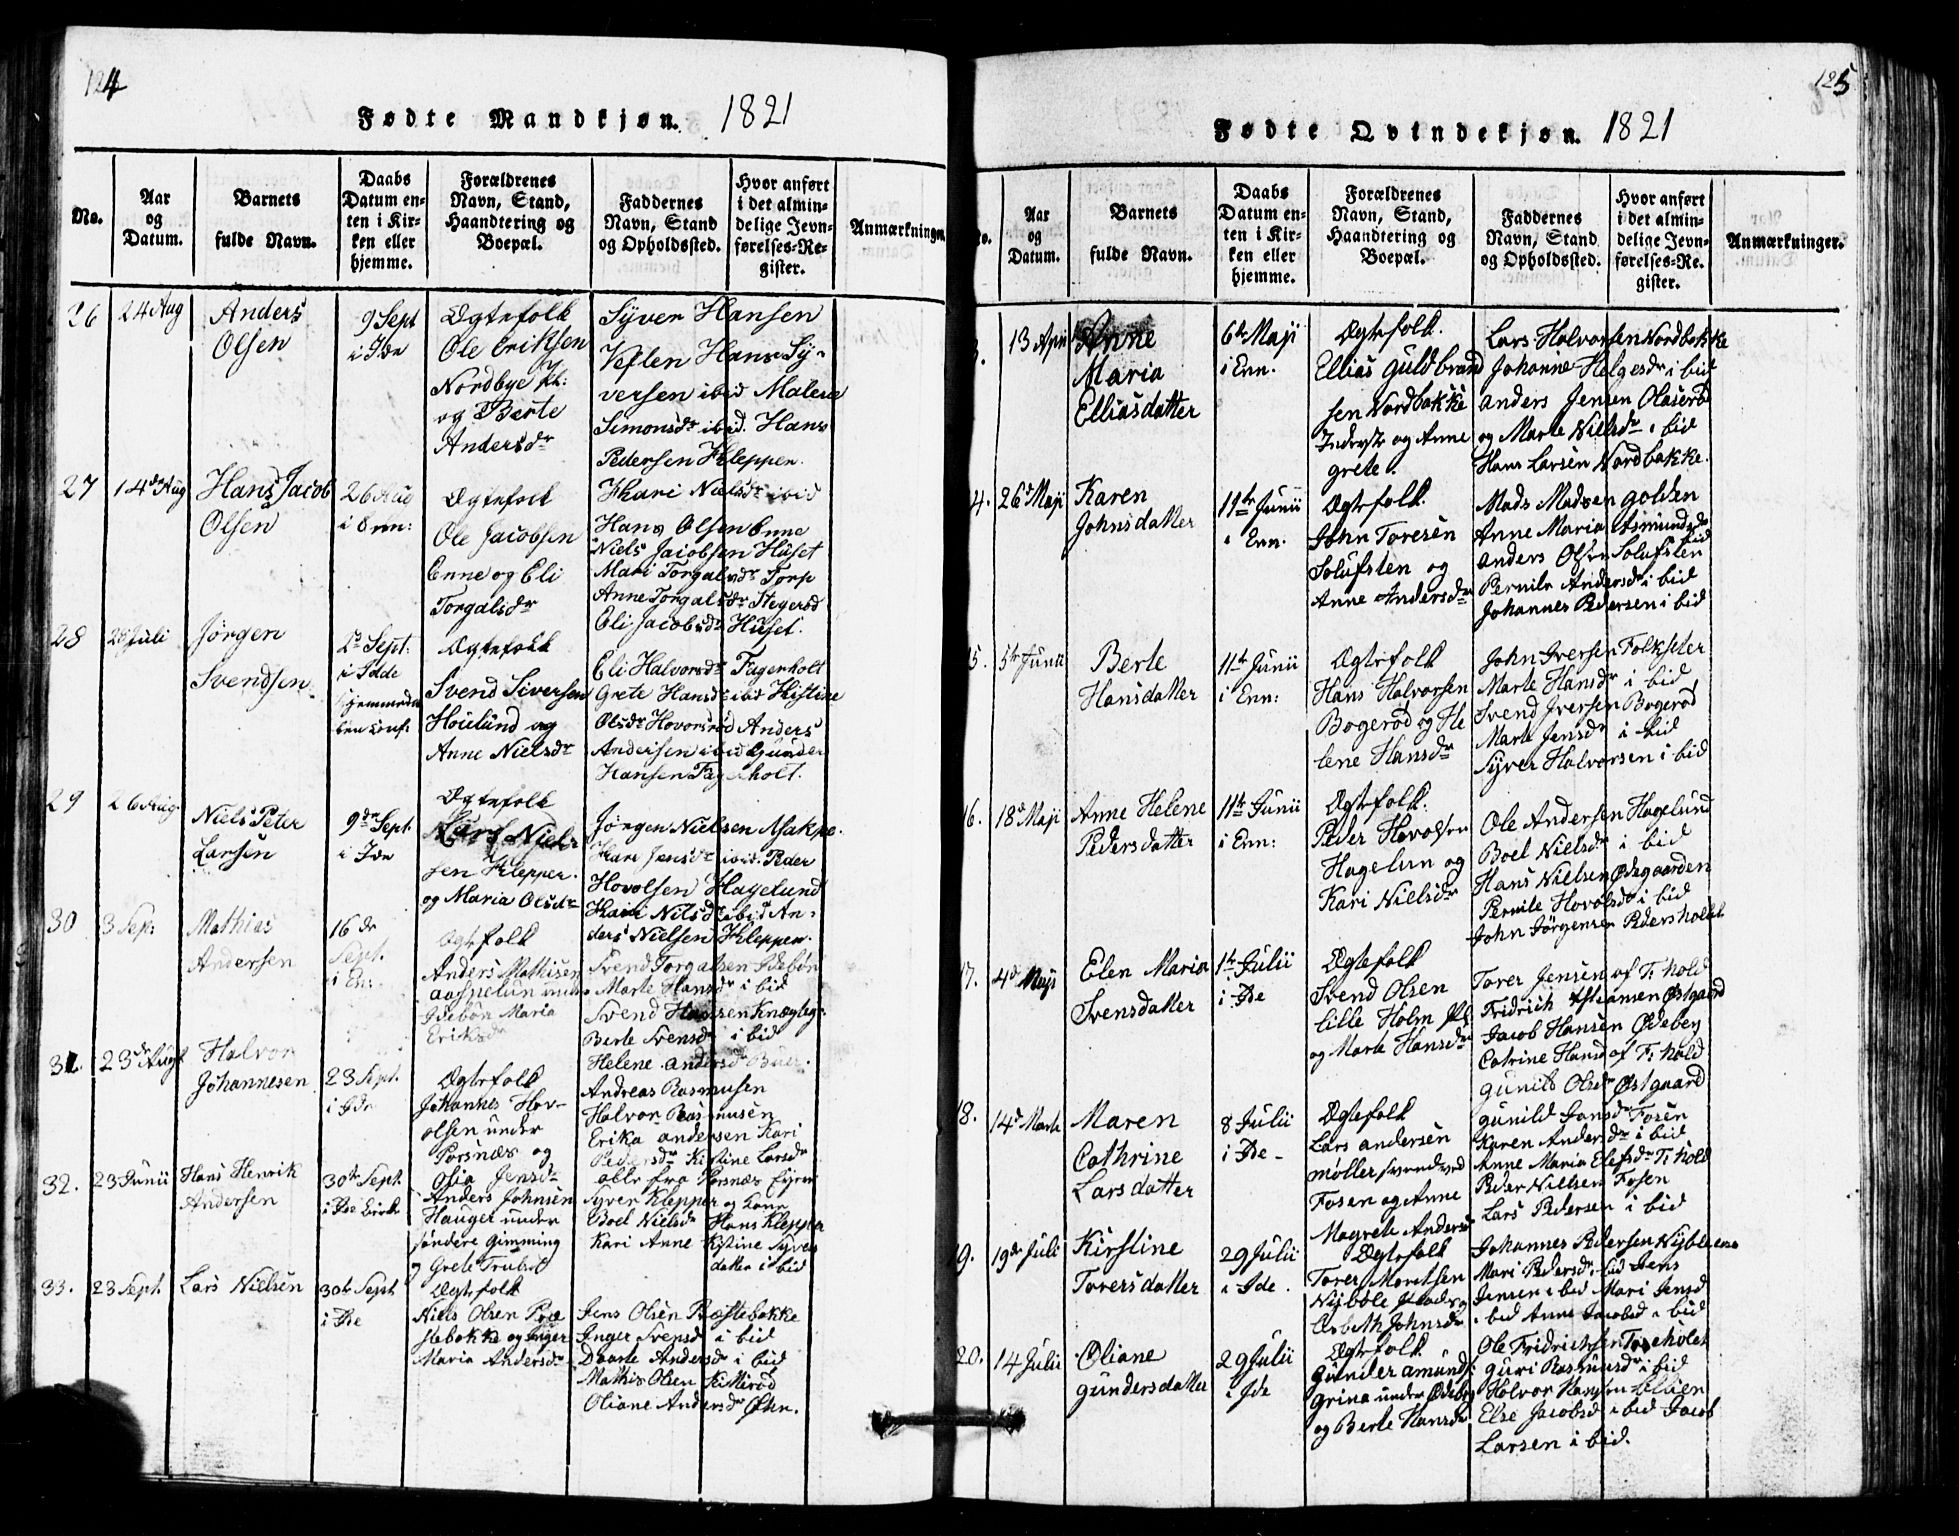 124
Fødte Mandkjøn. 1821
No.
Aar
og
Datum.
Barnets
fulde Navn.
Daabs
Datum en-
ten i Kir-
ken eller
hjemme.
Forældrenes
Navn, Stand,
Haandtering og
Boepæl.
Faddernes
Navn, Stand
og Opholdssted.
Hvor anført
i det almin-
delige Jevn-
førelses-Re-
gister.
Anmærkninger.
26
24 Aug
Anders
Olsen
9 Sept
i Ide
Ægtefolk
Ole Eriksen
Nordbye pl:
og Berte
Andersdr
Syver Hansen
Veflen Hans Sy-
versen ibid Malene
Simonsdr ibid. Hans
Pedersen Kleppen.
27
14de Aug
Hans Jacob
Olsen
26 Aug
i Enn:
Ægtefolk
Ole Jacobsen
Enne og Eli
Torgalsdr
Khari Nielsdr ibid
Hans Olsen Enne
Niels Jacobsen Huset
Mari Torgalsdr Torp
Anne Torgalsdr Stegerød
Eli Jacobsdr Huset.
28
28 Juli
Jørgen
Svendsen
2de Sept:
i Idde
Ægtefolk
Svend Siversen
Houlund og
Anne Nielsdr
Eli Halvorsdr Fagerholt
Grete Hansdr ibid Kistine
Olsdr Hovorsrød Anders
Andersen ibid Gunder
Hansen Fagerholt.
29
26 Aug.
Niels Peter
Larsen
9de Sept.
i Ide
Ægtefolk
Lars Niel-
sen Klepper.
og Maria Olsdr
Jørgen Nielsen Asakpe.
Khari Jensdr ibid. Peder
Hovolsen Hagelund
Khari Nilsdr ibid An-
ders Nielsen Kleppen.
30
3 Sep:
Mathias
Andersen
16 de
Sept.
i En:
Ægtefolk
Anders Mathisen
aaspelun under
Idebøn Maria
Eriksdr
Svend Torgalsen Idebøn
Marte Hansdr i bid
Svend Hansen Knægleg:
Berte Svensdr i bid
Helene andersd Buer.
31.
23de Augt
Halvor
Johannesen
23 Sept.
i Ide
Ægtefolk
Johannes Hov-
olsen under
Porsnæs og
Osia Jensdr
Andreas Rasmusen
Halvor Rasmusen
Erika andersen Kari
Pedersdr Kistine Larsdr
alle fra Porsnæs Eyren
32.
23 Junii
Hans Henrik
Andersen
30te Sept
i Ide Kirk
Anders Johnsen
Hauger under
søndere Gimming
og Grete Truls
Syver Klepper og Kone
Boel Nielsdr Hans Klepper
Kari Anne Kistine Syvers
datter i bid
33.
23 Sept.
Lars Nielsen
30te Sept
i Ide
Ægtefolk
Niels Olsen Præ
stebakke og Inger
Maria Andersdr
Jens Olsen Præstebakke
Inger Svensd i bid
Daarte Andersdr i bid
Mathis Olsen Kitterød
Oliane Andersdr Øhn.
125
Fødte Qvindekjøn. 1821
No.
Aar
og
Datum.
Barnets
fulde Navn.
Daabs
Datum en-
ten i Kir-
ken eller
hjemme.
Forældrenes
Navn, Stand,
Haandtering og
Boepæl.
Faddernes
Navn, Stand
og Opholdssted.
Hvor anført
i det almin-
delige Jevn-
førelses-Re-
gister.
Anmærkninger.
3.
13 April
Anne
Maria
Elliasdatter
6te Maji
i Enn.
Ægtefolk.
Ellias Guldbrand
sen Nordbakke
Inderste og Anne
grete.
Lars Halvorsen Nordbakke
Johanne Helgesdr i bid
anders Jensen Olaserød
og Marte Nielsdr i bid
Hans Larsen Nordbakke.
4.
26de Maji
Karen
Johnsdatter
11te Junii
i Enn.
Ægtefolk
John Toresen
Solufsten og
Anne Andersdr
Mads Madsen Golden
Anne Maria Asmundsdr
bid
anders Olsen Solufsten
Pernile Andersdr i bid
Johannes Pedersen i bid
15.
5te Junii
Berte
Hansdatter
11te Junii
i Enn:
Ægtefolk
Hans Halvorsen
Bogerød og He
lene Hansdr
John Iversen Folkseter
Marte Hansdr i bid
Svend Iversen Bogerød
Marte Jensdr i bid
Syver Halvorsen i bid
16.
18de Maji
Anne Helene
Pedersdatter
11te Junii
i Enn:
Ægtefolk.
Peder Hovolsen
Hagelun og
Kari Nielsdr
Ole Andersen Hagelund
Boel Nielsdr i bid
Hans Nielsen Ødegaarden
Pernile Hovolsdr i bid
John Jørgensen Pedersholdt
17.
4de Maji
Elen Maria
Svensdatter
1te Julii
i Ide
Ægtefolk
Svend Olsen
lille Holm Pl
og Marte Hansdr
Torer Jensen af T: hold
Fridrich Hansen Østgaard
Jacob Hansen Ødebey
Catrine Hansd af T: hold
gunild Olsdr Østgaard
18.
14de Marti
Maren
Cathrine
Larsdatter
8 Julii
i Ide
Ægtefolk
Lars andersen
møllersvend ved
Fosen og Anne
Magrete Andersdr
gunild Hansdr Fosen
Karen Andersdr i bid
Anne Maria Elefsdr T: hold
Peder Nielsen Fosen
Lars Pedersen i bid
19.
19de Juli
Kirstine
Toversdatter
29 Julii
i Ide.
Ægtefolk
Torer Moretsen
Nybøle plads og
Lisbeth Johnsdr
Johannes Pedersen Nybøleene
Mari Pedersdr i bid Jens
Jensen i bid Mari Jensd
i bid Anne Jacobsd i bid
20.
14 Julii
Oliane
gundersdatter
29 Julii
i Ide
Ægtefolk
Gunder amunds
Grina under Ødeby
og Berte Hansdr
Ole Fridrichsen Torpeholet
Guri Rasmusdr i bid
Halvor Hansen Lillien
Else Jacobsd i bid Jacob
Larsen i bid.